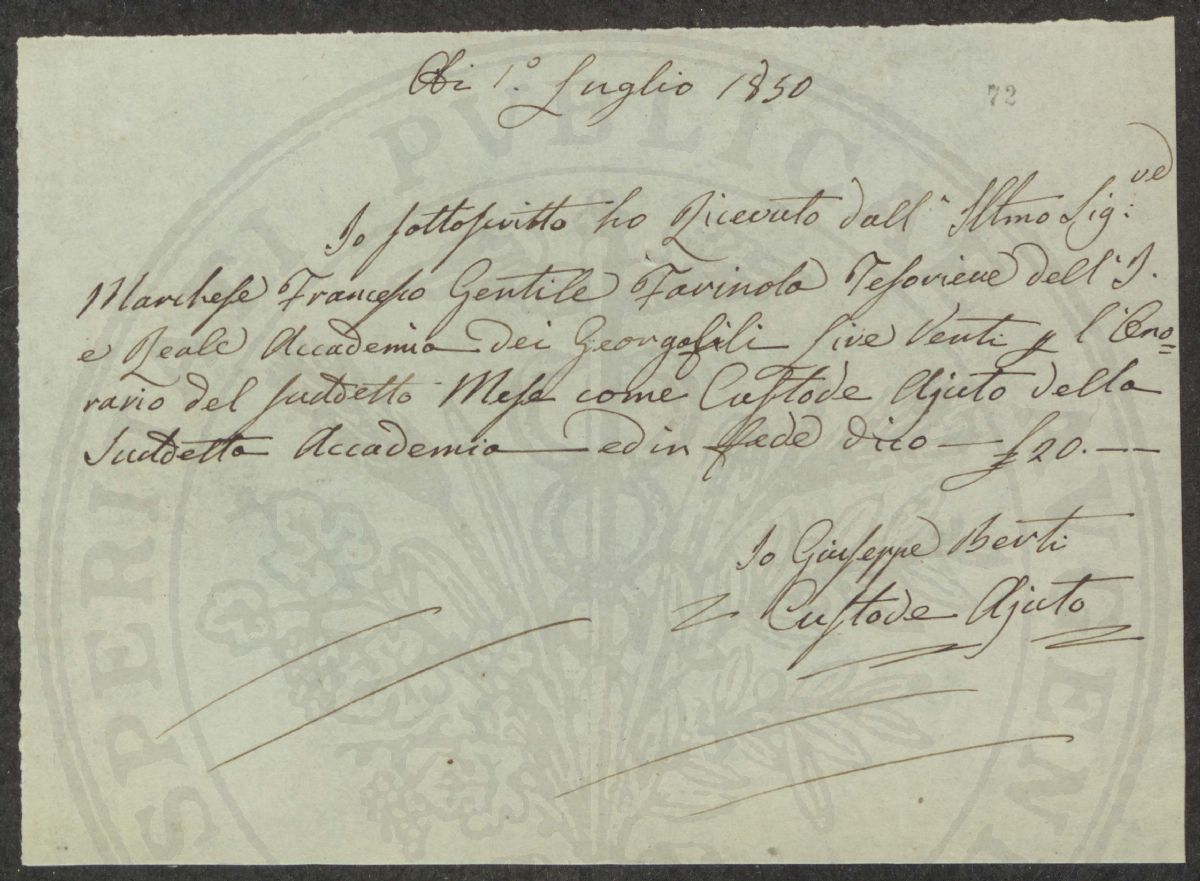 Adi 1.° Luglio 1850
72
Io sottoscritto ho Ricevuto dall' Illmo Sig.re
Marchese Francesco Gentile Farinola Tesoriere dell' I.
e Reale Accademia dei Georgofili Lire Venti p l' Ono=
rario del suddetto Mese come Custode Ajuto della
Suddetta Accademia — ed in fede dico — £ 20. — —
Io Giuseppe Berti
Custode Ajuto